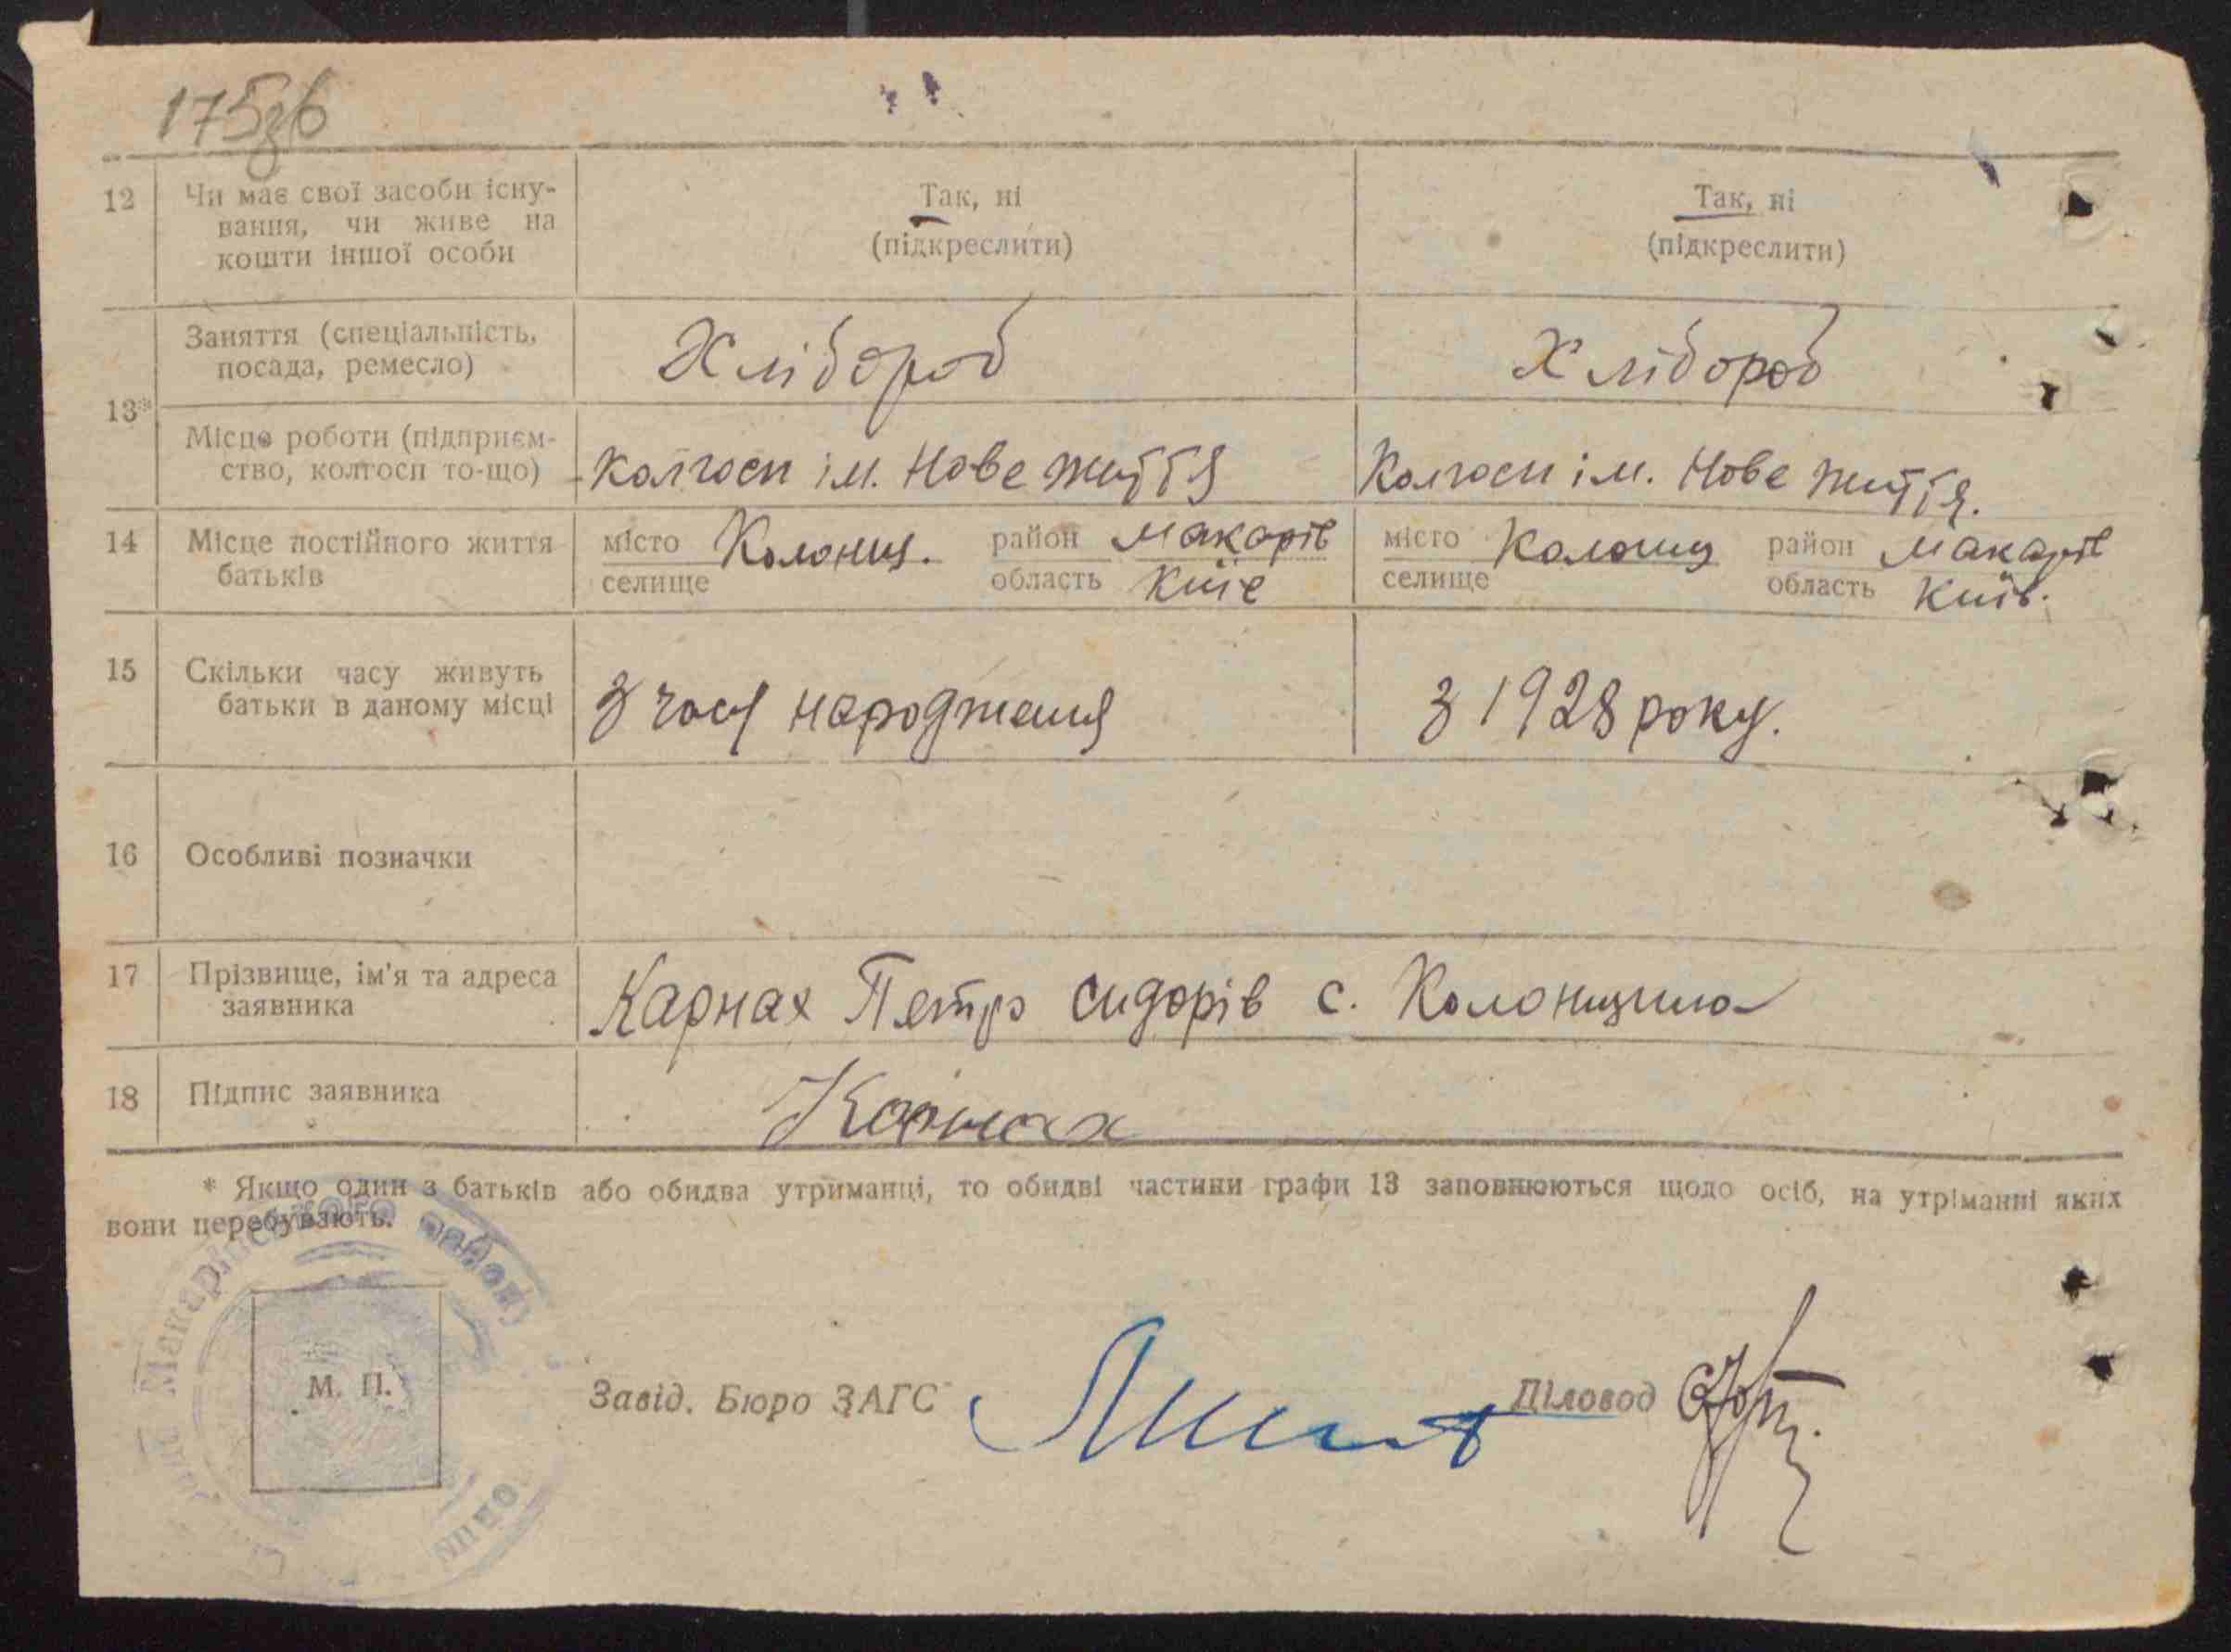 175зв
12 Чи має свої засоби існу-
вання, чи живе на
кошти іншої особи
Так, ні
(підкреслити)
Так, ні
(підкреслити)
13*
Заняття (спеціальність,
посада, ремесло)
Хлібороб
Хлібороб
Місце роботи (підприєм-
ство, колгосп то-що)
Колгосп ім. Нове життя
Колгосп ім. Нове життя.
14 Місце постійного життя
батьків
місто
селище
Колонщ.
район Макарів
область Київ
місто
селище
Колонщ
район Макарів
область Київ.
15 Скільки часу живуть
батьки в даному місці
З часу народження
З 1928 року.
16 Особливі позначки
17 Прізвище, ім'я та адреса
заявника
Карнах Петро Сидорів с. Колонщина
18 Підпис заявника
Карнах
* Якщо один з батьків або обидва утриманці, то обидві частини графи 13 заповнюються щодо осіб, на утріманні яких
вони перебувають.
Макарівського району
М. П.
Завід. Бюро ЗАГС
Діловод